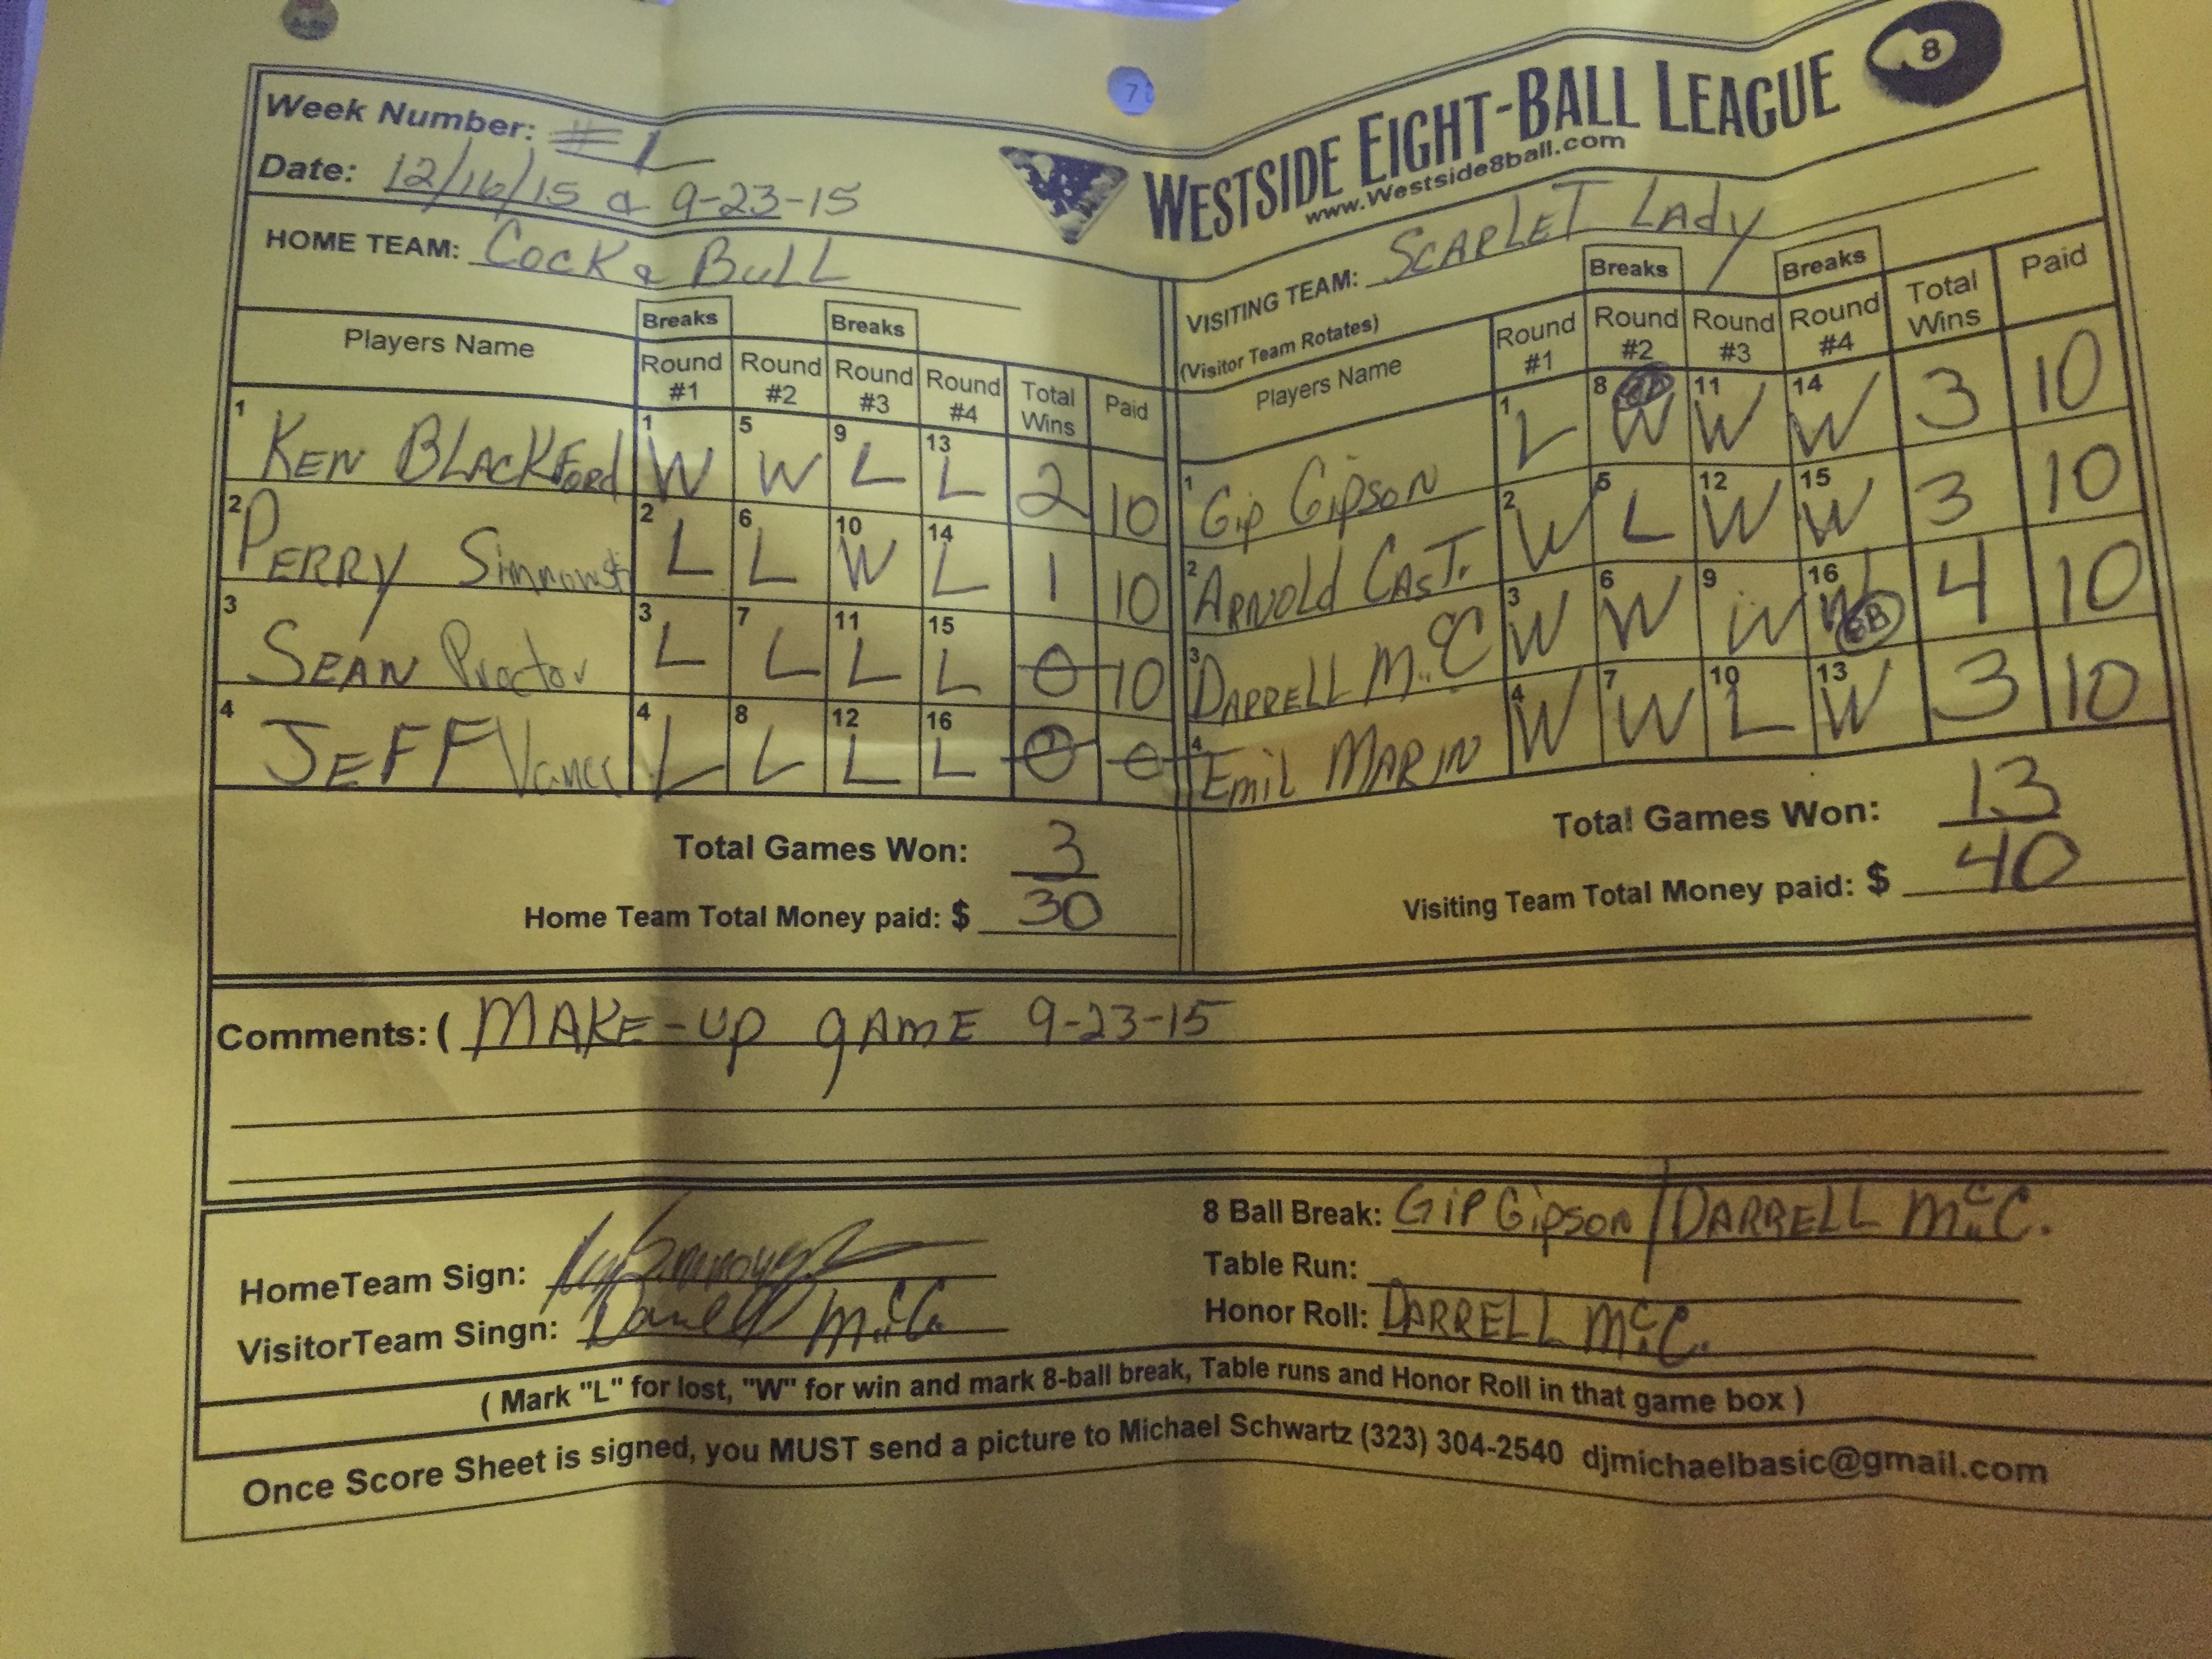 Week Number: #1
Date: 12/16/15 & 9-23-15
WESTSIDE EIGHT-BALL LEAGUE
8
www.Westside8ball.com
HOME TEAM: COCK & BULL
VISITING TEAM: SCARLET LADY
(Visitor Team Rotates)
Breaks Breaks
Players Name Round #1 Round #2 Round #3 Round #4 Total Wins Paid
1 KEN BLACKFORD 1 W 5 W 9 L 13 L 2 10
2 PERRY 2 L 6 L 10 W 14 L 1 10
3 SEAN Proctor 3 L 7 L 11 L 15 L 0 10
4 JEFF Vance 4 L 8 L 12 L 16 L 0 0
Total Games Won: 3
Home Team Total Money paid: $ 30
Breaks Breaks
Players Name Round #1 Round #2 Round #3 Round #4 Total Wins Paid
1 Gip Gipson 1 L 8 W 11 W 14 W 3 10
2 ARNOLD CAST. 2 W 5 L 12 W 15 W 3 10
3 DARRELL McC 3 W 6 W 9 W 16 W 8B 4 10
4 Emil MARIN 4 W 7 W 10 L 13 W 3 10
Total Games Won: 13
Visiting Team Total Money paid: $ 40
Comments: ( MAKE-UP GAME 9-23-15
HomeTeam Sign:
VisitorTeam Singn: Darrell McC.
8 Ball Break: GIP GIPSON / DARRELL McC.
Table Run:
Honor Roll: DARRELL McC.
( Mark "L" for lost, "W" for win and mark 8-ball break, Table runs and Honor Roll in that game box )
Once Score Sheet is signed, you MUST send a picture to Michael Schwartz (323) 304-2540 djmichaelbasic@gmail.com